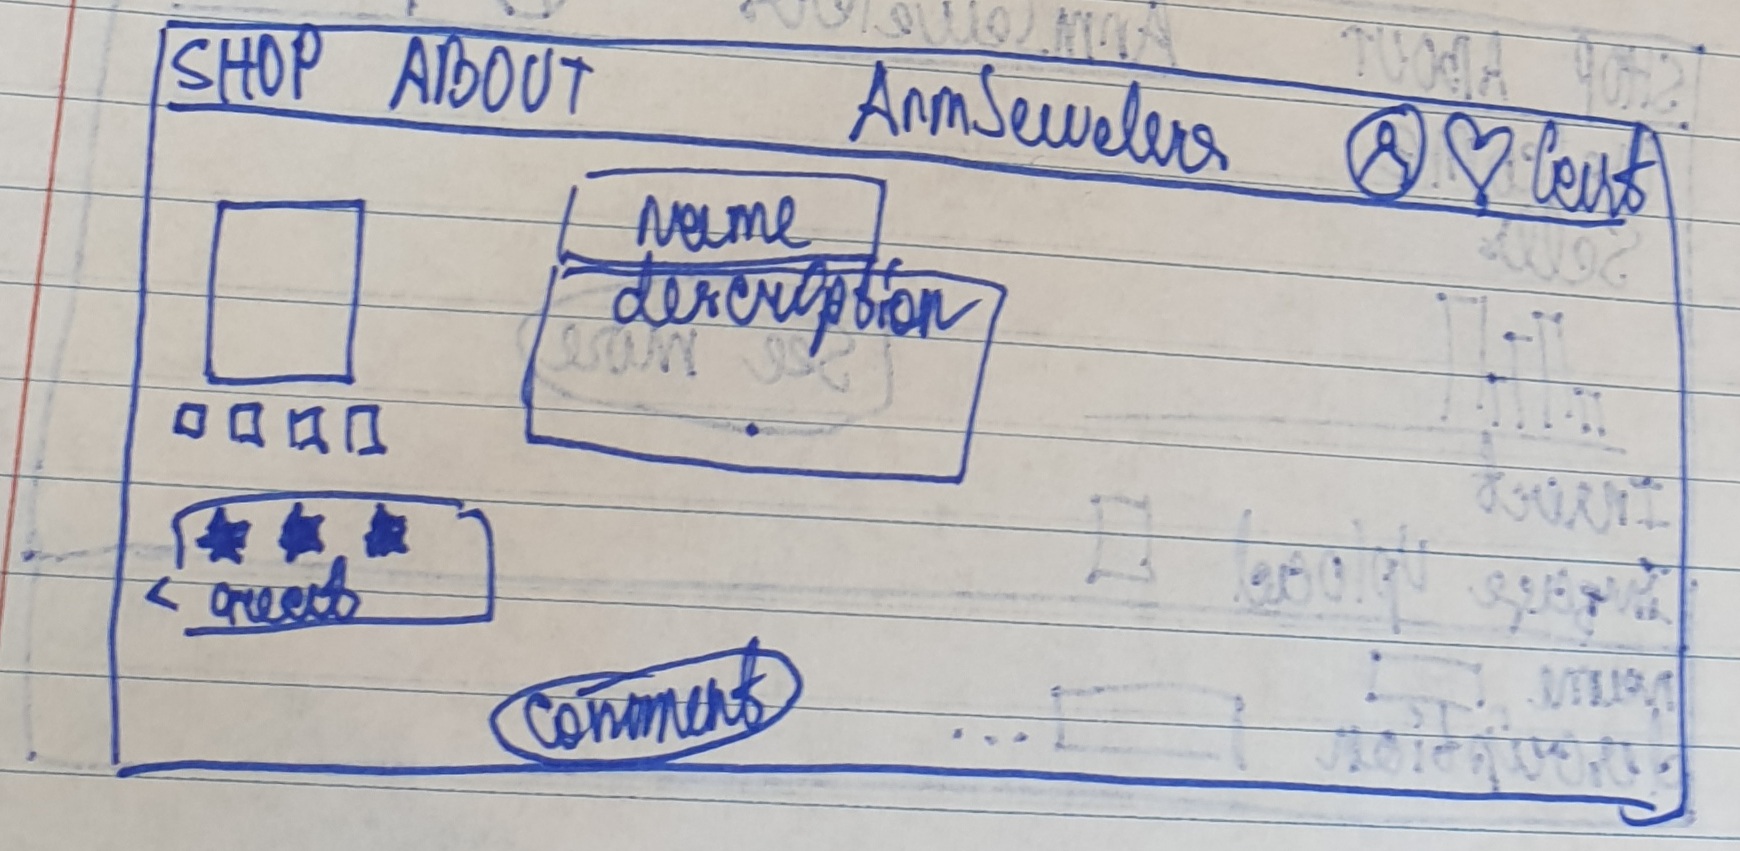 SHOP ABOUT ArmJewelers Cart
name
description
comment